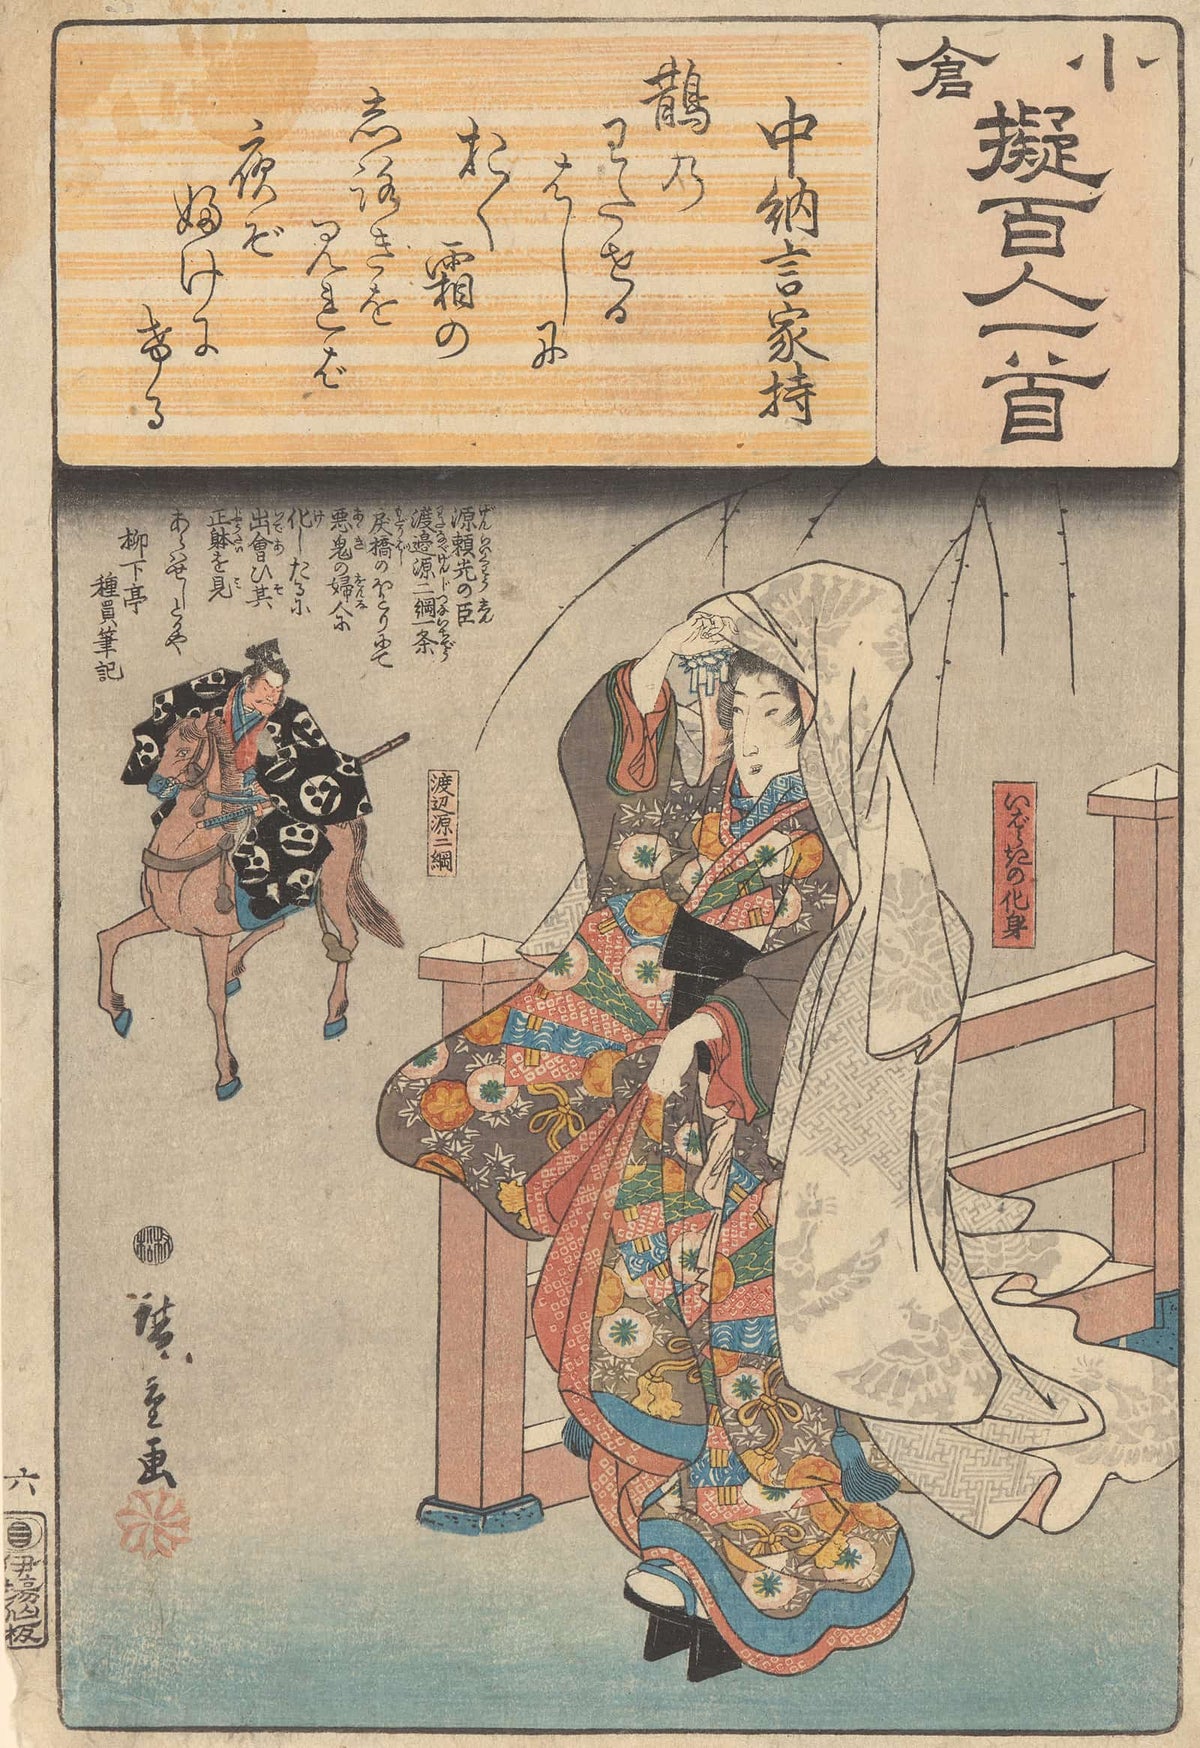 小倉
擬百人一首
中納言家持
鵲乃
わたせる
はしに
おく
霜の
志路きを
見れば
夜ぞ
ふけに
ける
源頼光の臣
渡邉源二綱一条
戻橋のほとりにて
悪鬼の婦人に
化したるに
出會ひ其
正躰を見
あらはせしとかや
柳下亭
種員筆記
渡辺源二綱
いばらきの化身
廣重画
六
伊場仙板